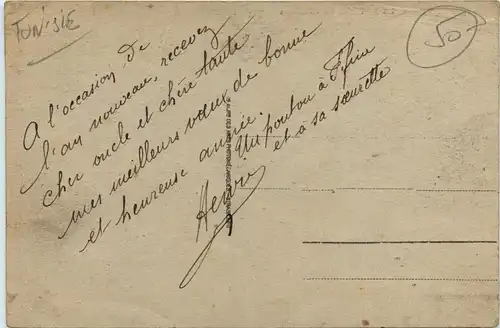 TUNISIE
50
A l'occasion de
l'an nouveau, recevez
cher oncle et chère tante
mes meilleurs vœux de bonne
et heureuse année.
Un poutou à
et à sa sœurette
Henri